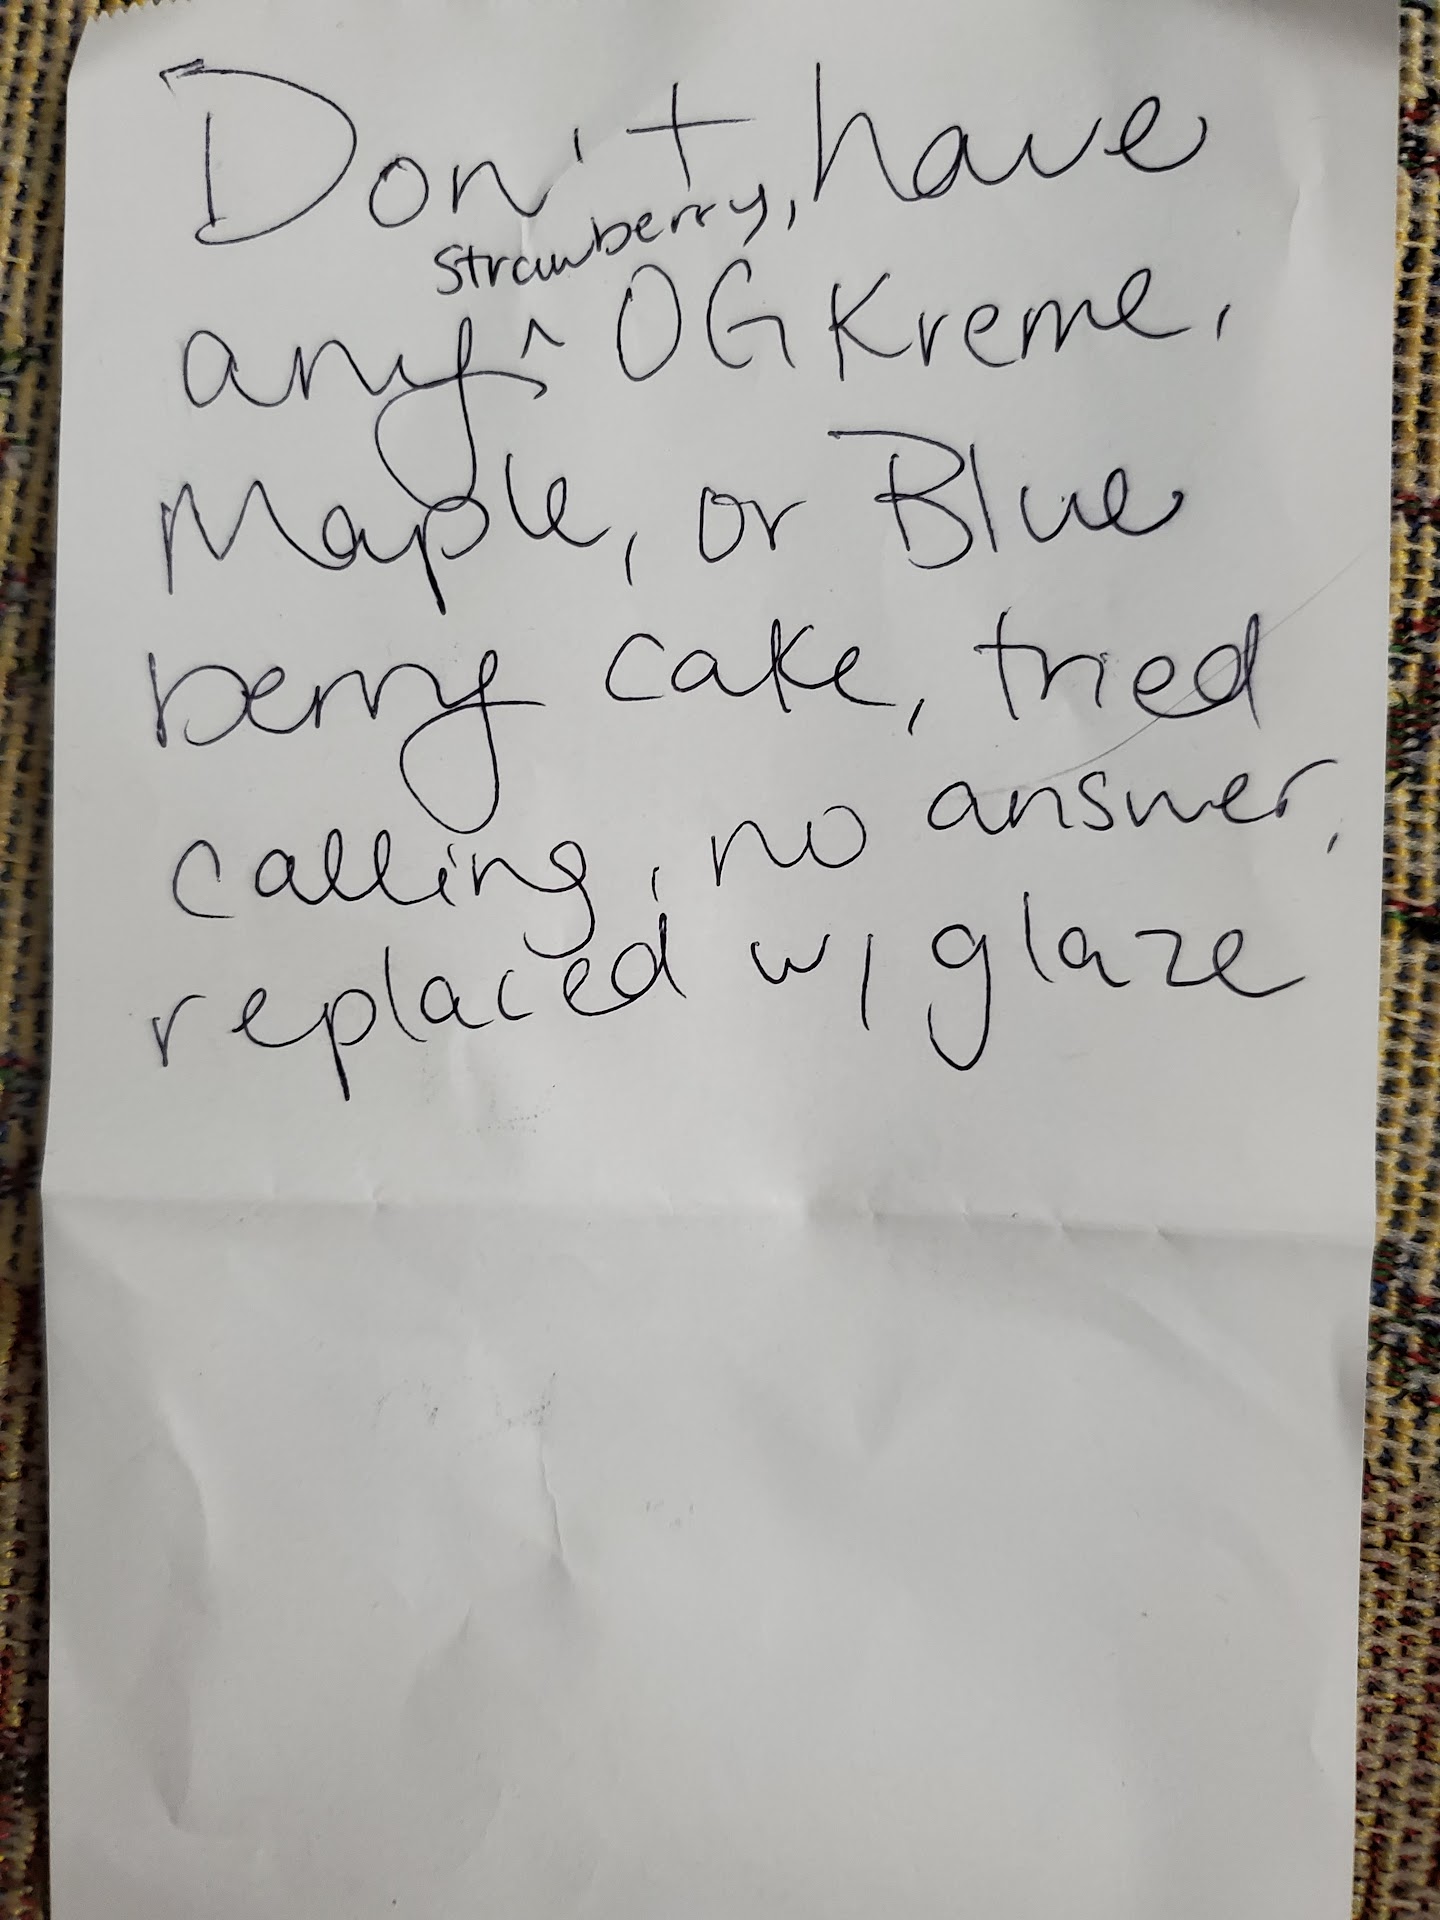 Don't have
any ^ strawberry, OG Kreme,
Maple, or Blue
berry cake, tried
calling, no answer,
replaced w/ glaze